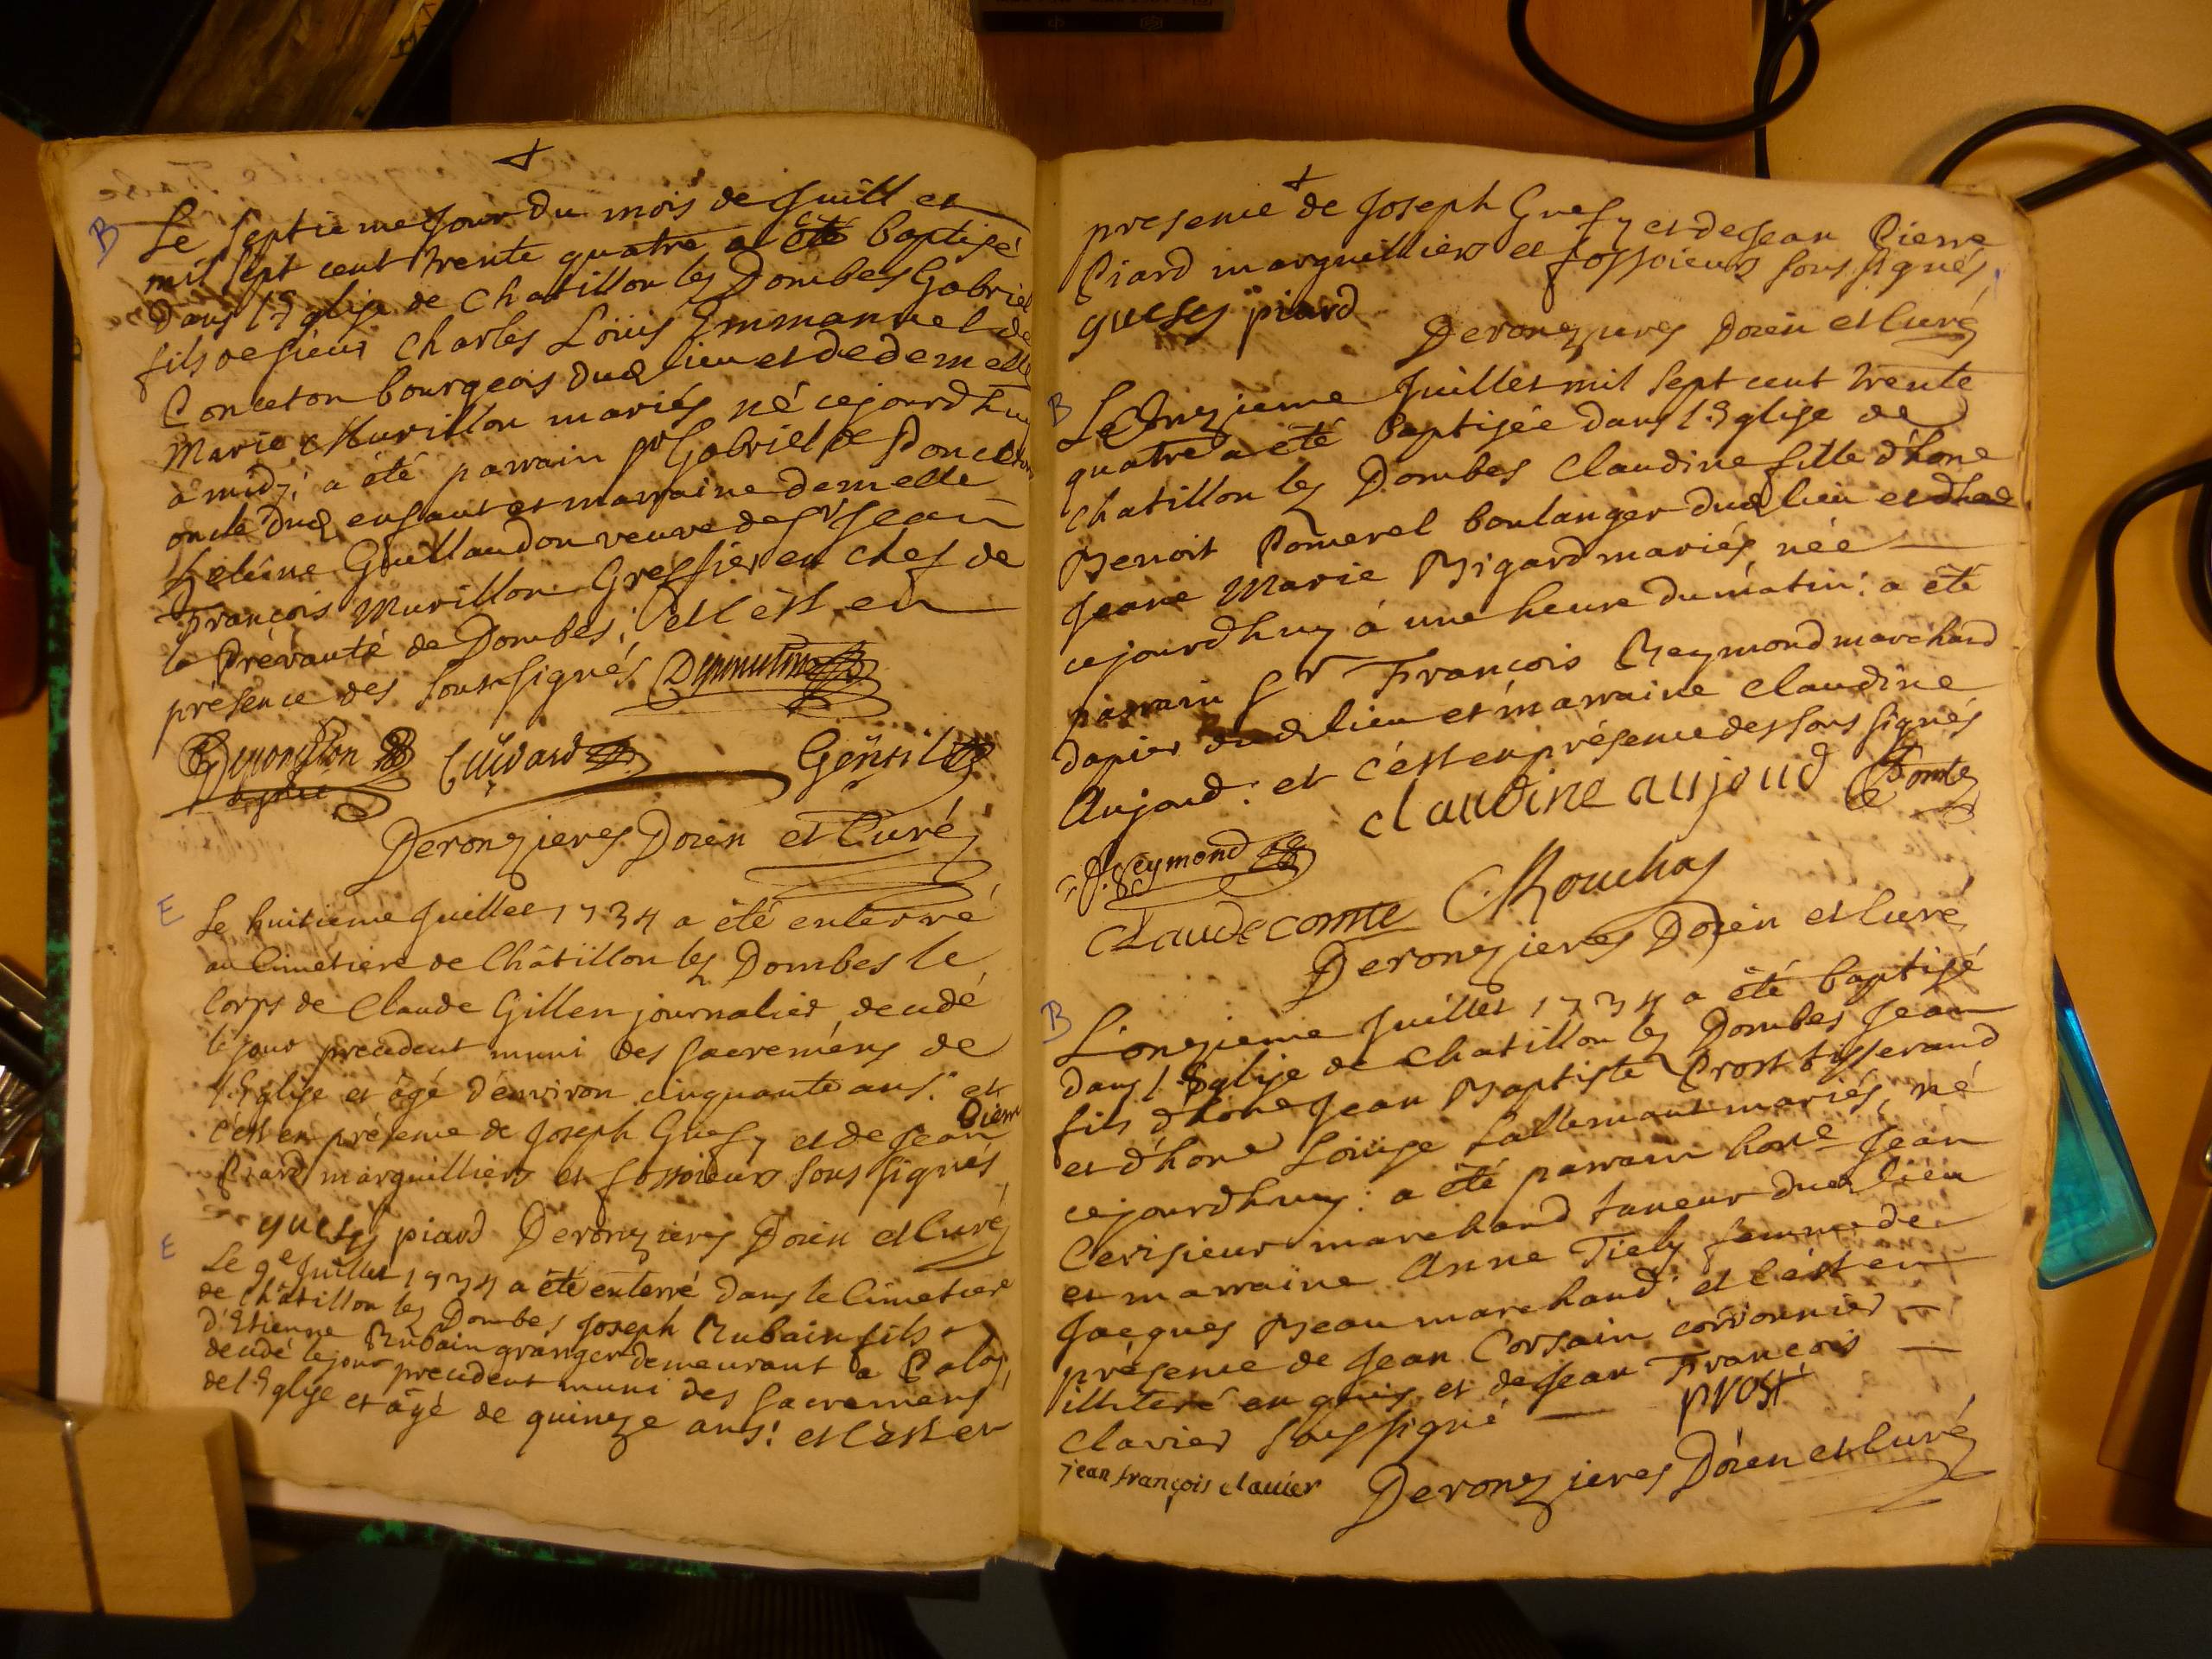 B
Le septieme Jour du mois de Juillet
mil sept cent trente quatre a été baptisé
dans l'Eglise de Chatillon les Dombes Gabriel
fils de sieur Charles Loüis Emmanuel de
Ponceton bourgeois dud lieu et de demelle
Marie Murillon mariés né cejourdhuy
à midy; a été parrain Sr Gabriel de Ponceton
oncle dud enfant et marraine demelle
heleine Guillaudon veuve de Sr Jean
François Murillon Greffier en chef de
la Prévauté de Dombes; et c'est en
présence des sous signés
Guivard Gentil
Deronzieres Doien et Curé
E
Le huitieme Juillet 1734 a été enterré
au Cimetiere de Châtillon les Dombes le
Corps de Claude Gillen journalier, decedé
le jour precedent muni des sacremens de
l'Eglise et âgé d'environ cinquante ans: et
c'est en présence de Joseph Guesy et de Jean Pierre
Piard marguilliers et fossoieurs sous signés
guesy piard Deronzieres Doien et Curé
E
Le 9e Juillet 1734 a été enterré dans le Cimetiere
de Châtillon les Dombes Joseph Rubain fils
d'Etienne Rubain granger demeurant a
decedé le jour precedent muni des Sacremens
de l'Eglise et âgé de quinze ans: et c'est en
presence de Joseph Guesy et de Jean Pierre
Piard marguilliers et fossoieurs sous signés
guesy piard
Deronzieres Doien et Curé
B
Le Onzieme Juillet mil sept cent trente
quatre a été baptisée dans l'Eglise de
Chatillon les Dombes Claudine fille d'hone
Benoit Pomerel boulanger dud lieu et dhone
Jeane Marie Bigard mariés née
cejourdhuy à une heure du matin: a été
parrain Sr François Reymond marchand
dapier dud lieu et marraine Claudine
Aujoud: et c'est en présence des sous signés
claudine aujoud Comte
Reymond
Claude comte Rouchas
Deronzieres Doien et Curé
B
L'onzieme Juillet 1734 a été baptisé
dans l'Eglise de Chatillon les Dombes Jean
fils d'hone Jean Baptiste Prost tisserand
et d'hone Loüise Lallemant mariés, né
cejourdhuy: a été parrain hone Jean
Cerisieur marchand taneur dud lieu
et marraine Anne Tiely femme de
Jacques Beau marchand: et c'est en
présence de Jean Corsain cordonnier
illiteré enquis et de Jean François
Clavier soussigné prost
jean françois clauier Deronzieres Doien et Curé